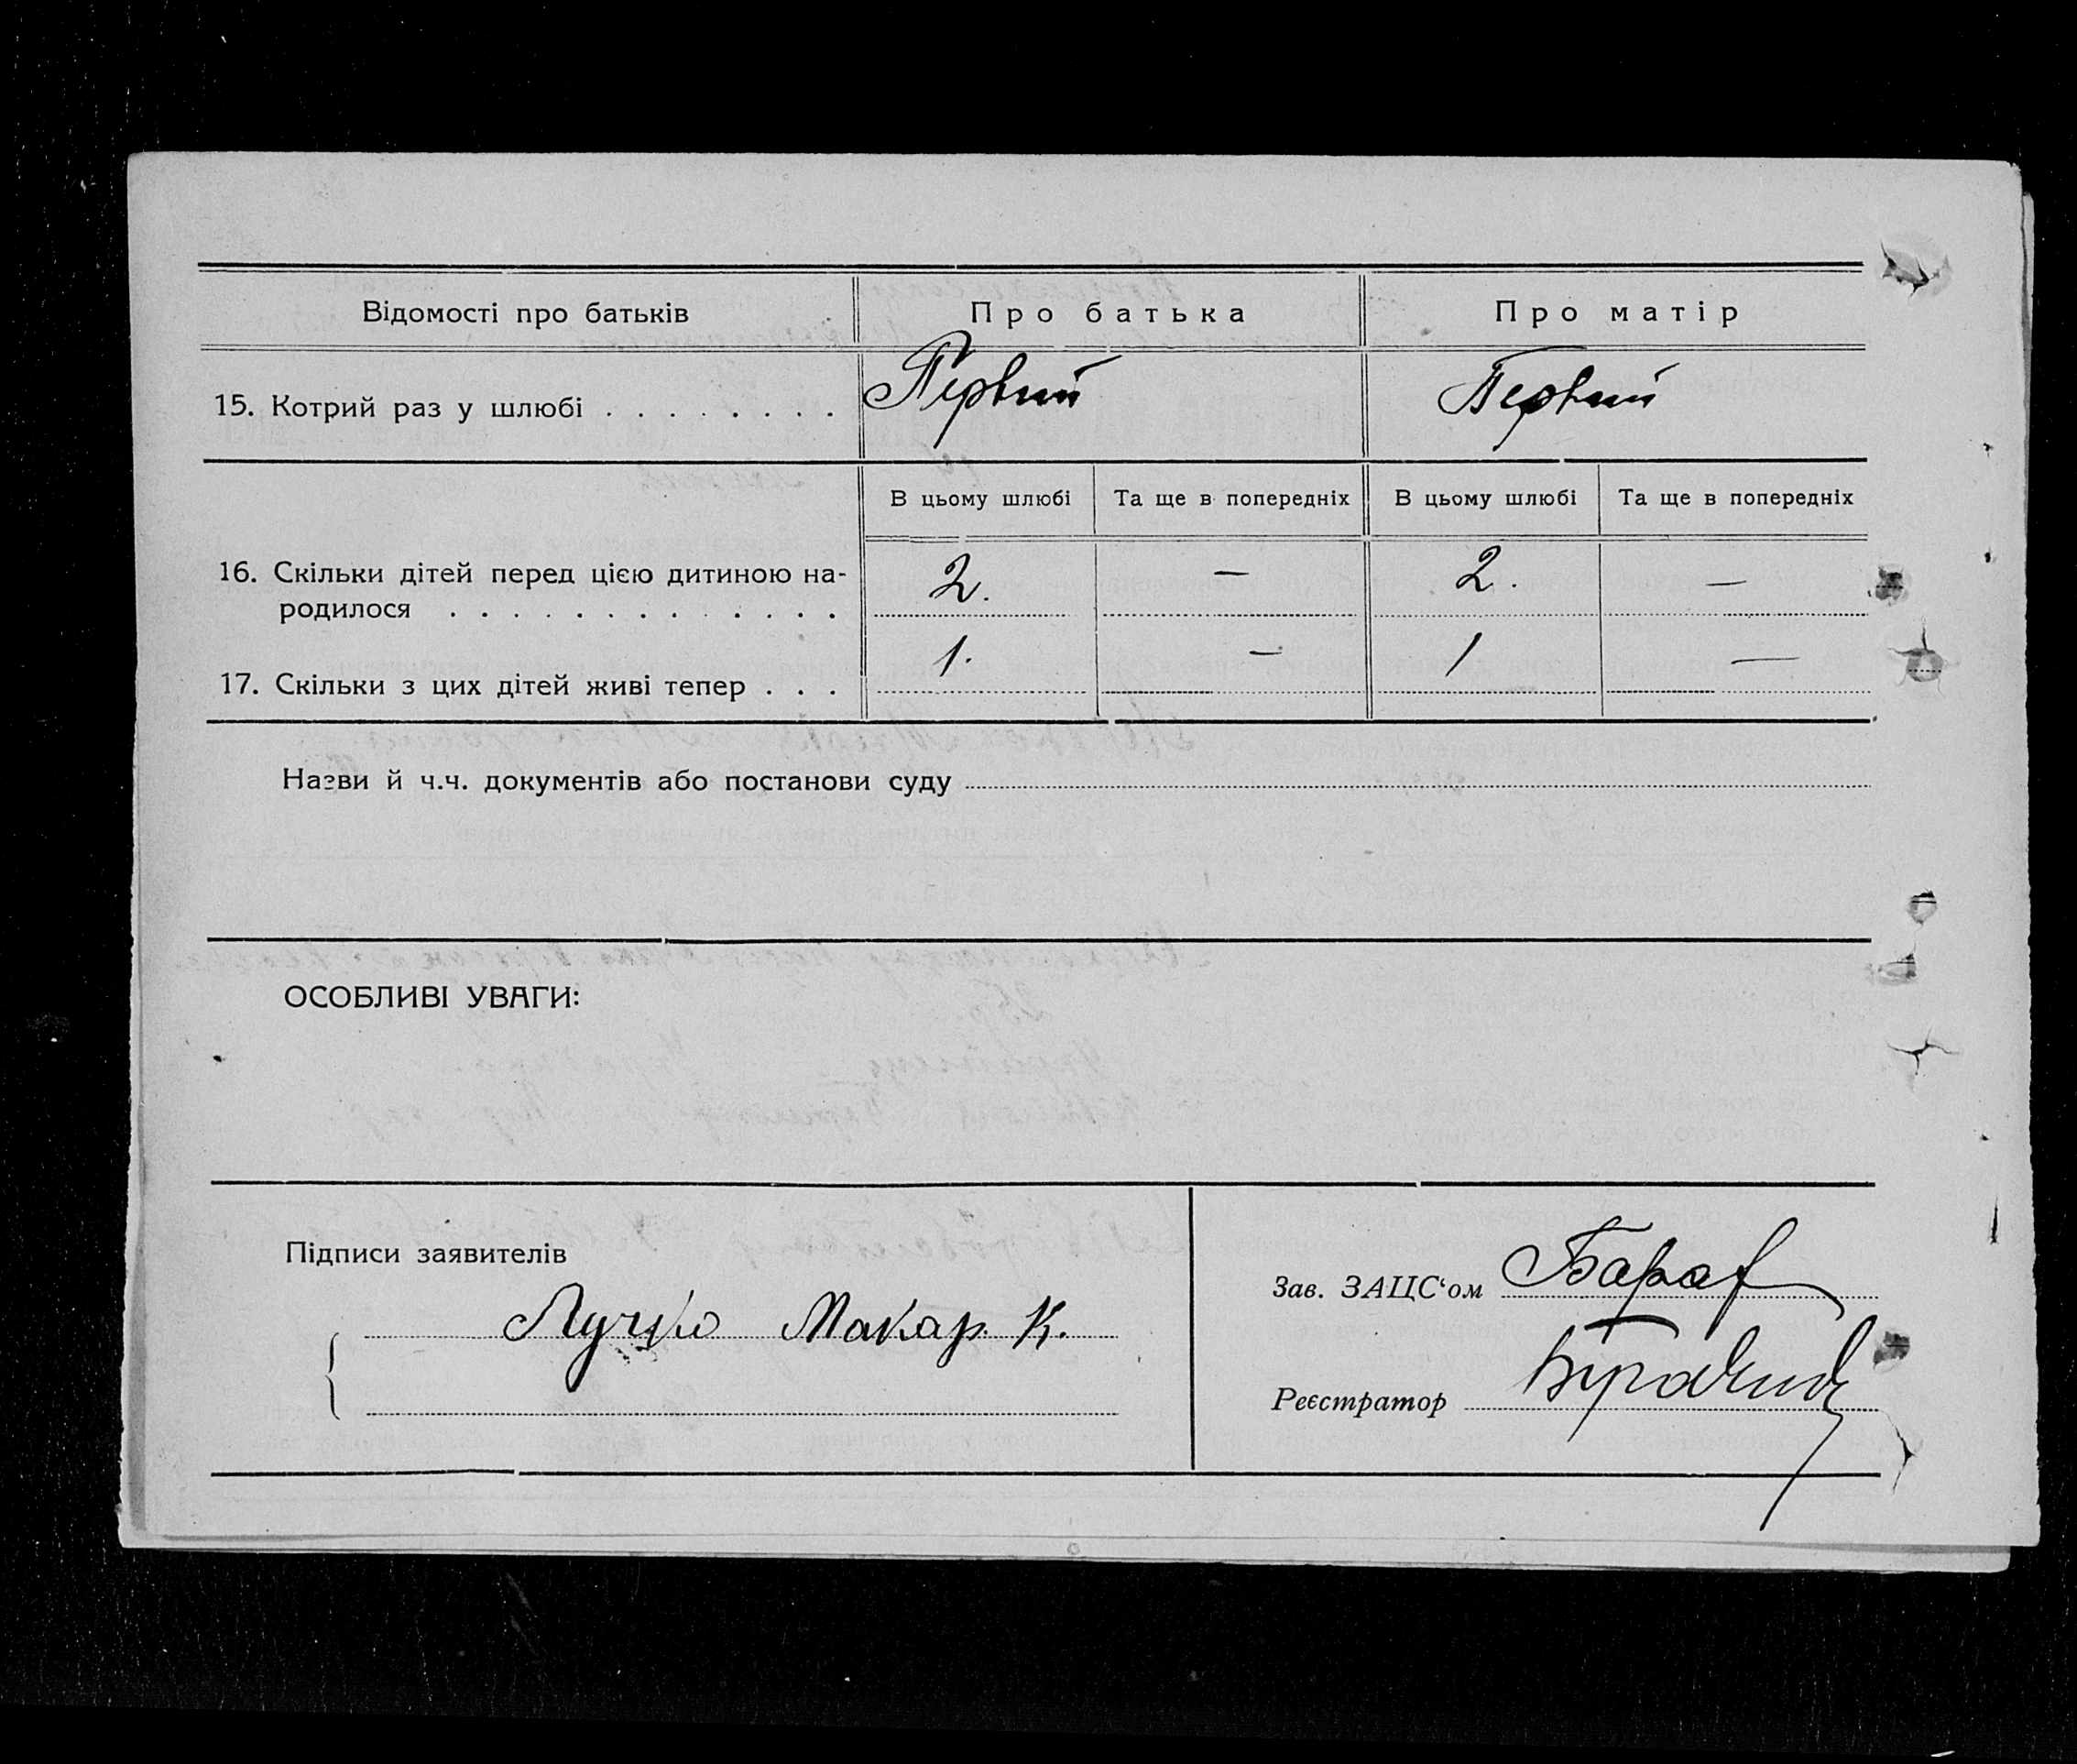 Відомості про батьків Про батька Про матір
15. Котрий раз у шлюбі . . . . . . . . Первий Первий
В цьому шлюбі Та ще в попередніх В цьому шлюбі Та ще в попередніх
16. Скільки дітей перед цією дитиною на- 2. — 2. —
родилося . . . . . . . . . . . . .
17. Скільки з цих дітей живі тепер . . . 1. — 1 —
Назви й ч.ч. документів або постанови суду
ОСОБЛИВІ УВАГИ:
Підписи заявителів
Лучко Макар К.
Зав. ЗАЦС‘ом
Реєстратор